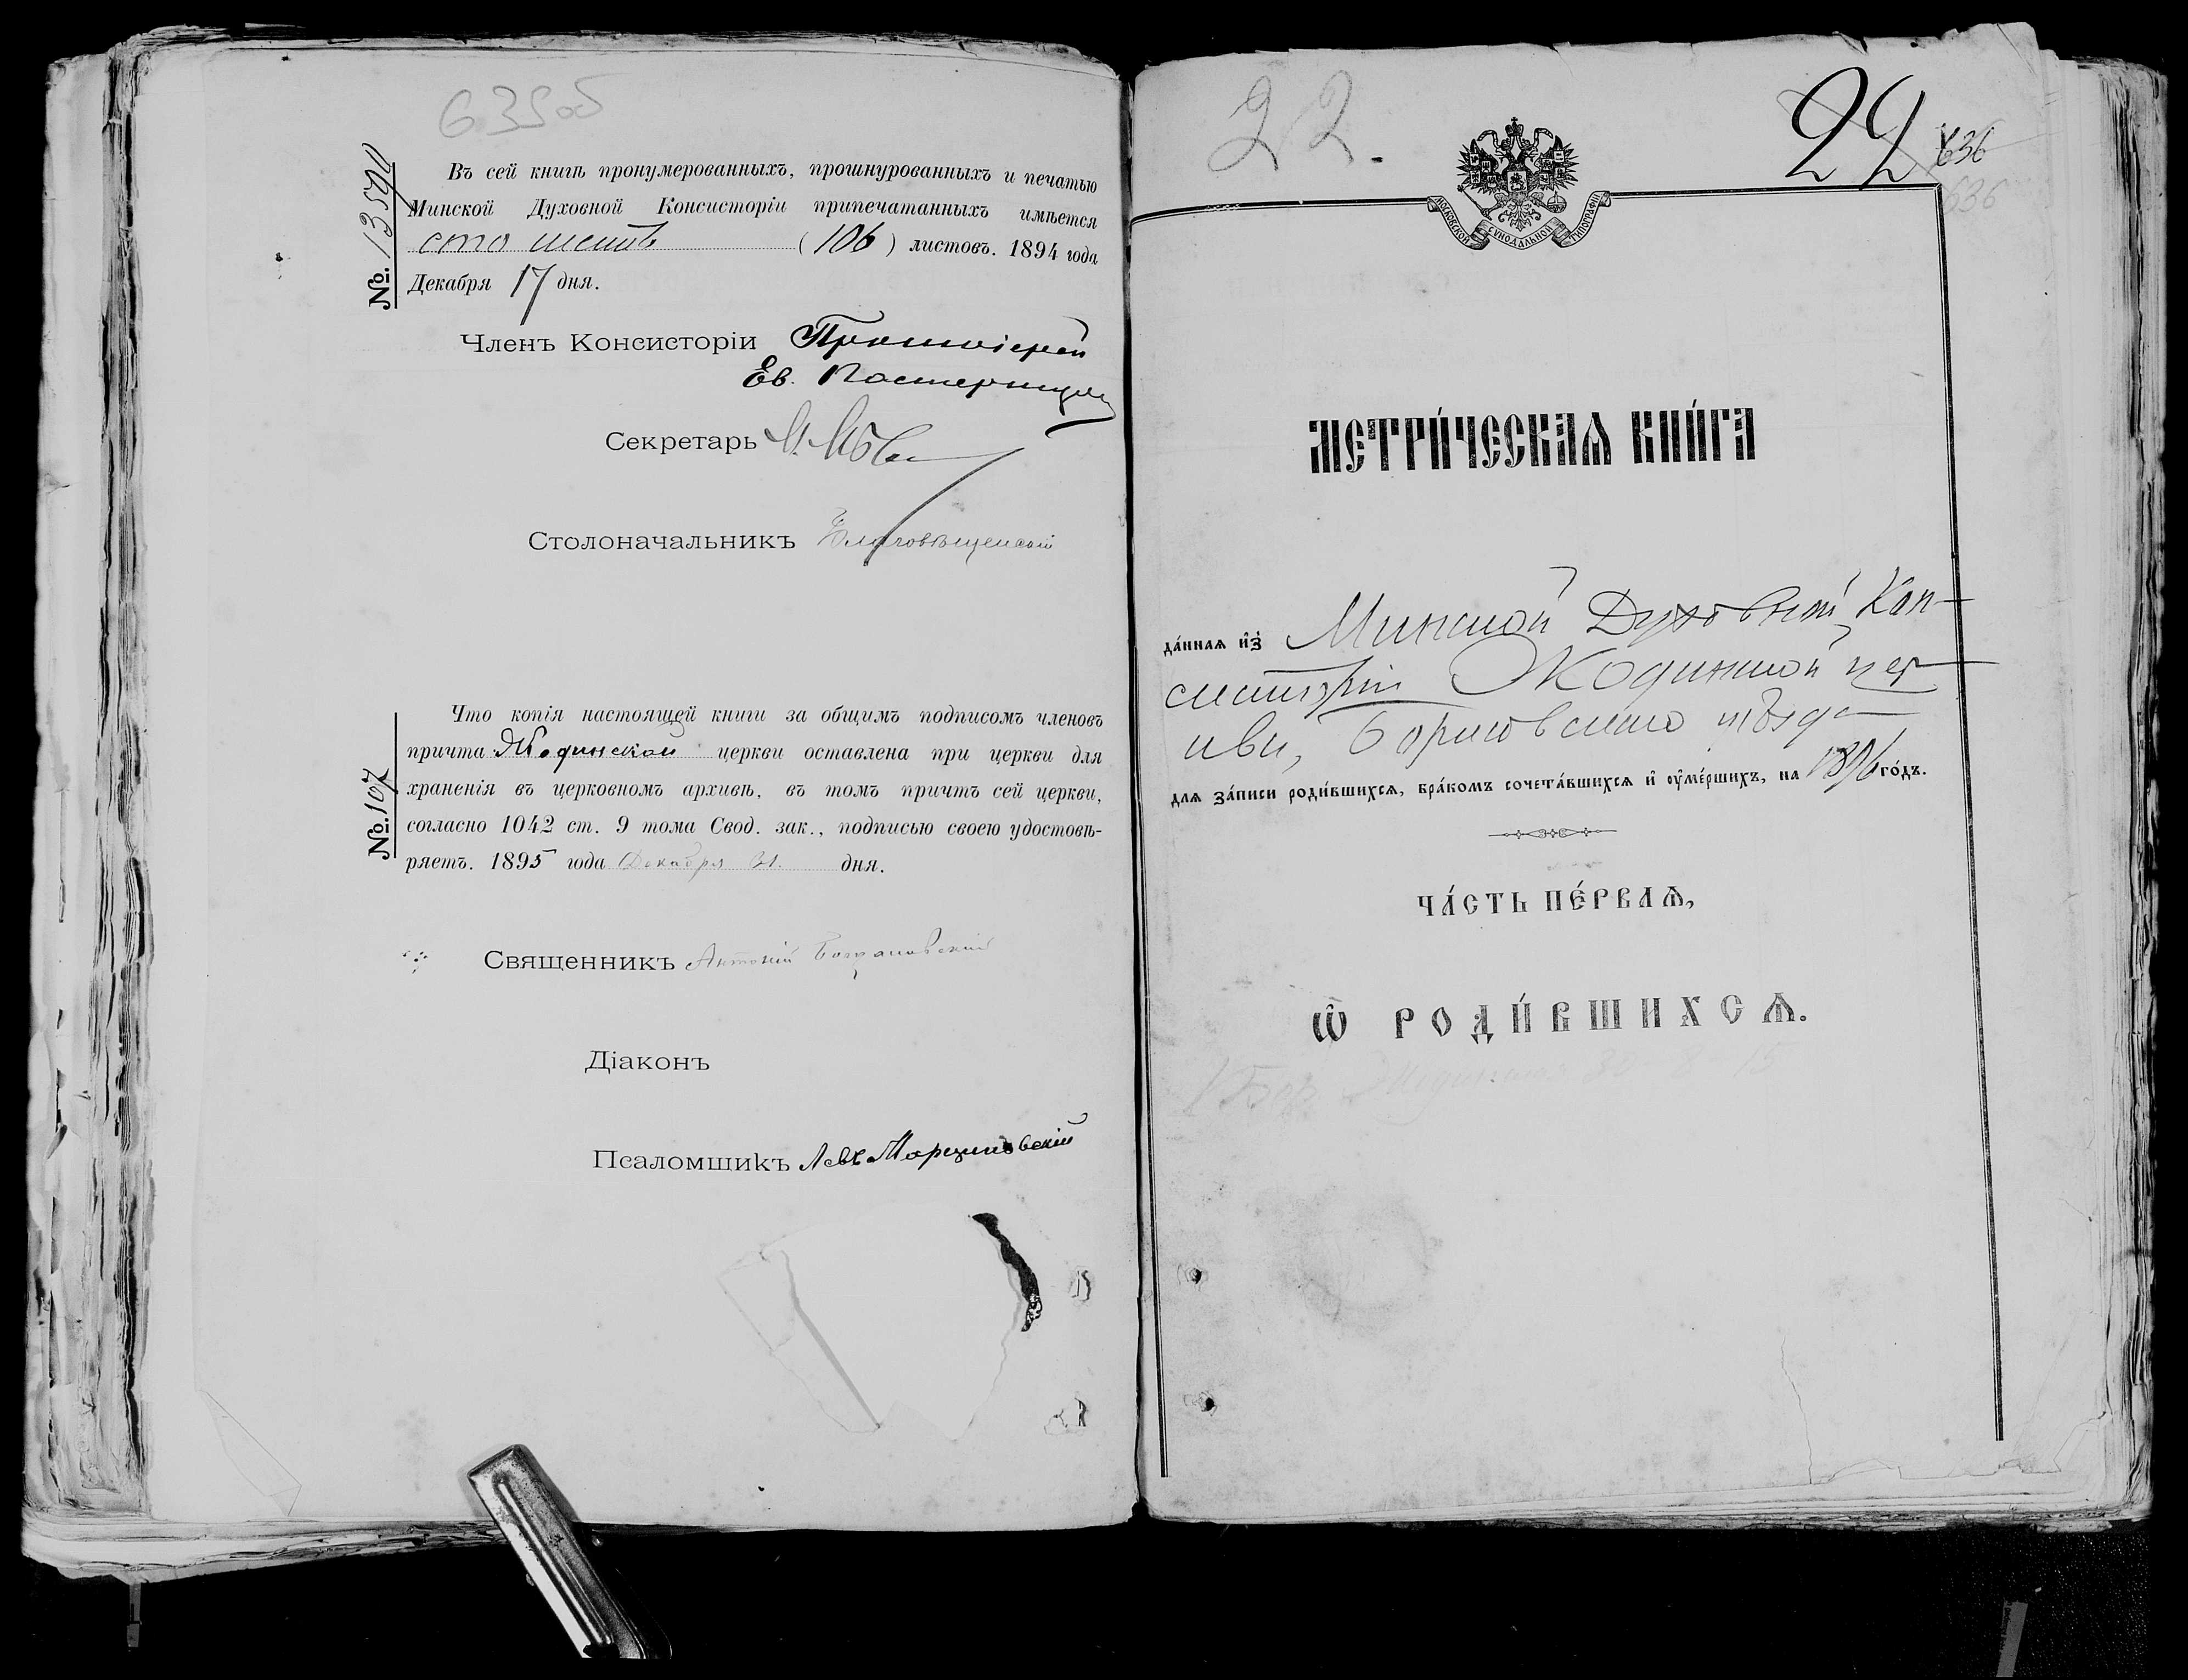 635об
№. 13590
Въ сей книгѣ пронумерованныхъ, прошнурованныхъ и печатью
Минской Духовной Консисторіи припечатанныхъ имѣется
сто шесть (106) листовъ. 1894 года
Декабря 17 дня.
Членъ Консисторіи Протоіерей
Ев.
Секретарь
Столоначальникъ Благовѣщенскій
№. 107
Что копія настоящей книги за общимъ подписомъ членовъ
причта Жодинской церкви оставлена при церкви для
храненія въ церковномъ архивѣ, въ томъ причтъ сей церкви,
согласно 1042 ст. 9 тома Свод. зак., подписью своею удостовѣ-
ряетъ. 1895 года Декабря 31. дня.
Священникъ Антоній
Діаконъ
Псаломщикъ Левъ Марциновскій
22.
22
636
636
МОСКОВСКОЙ СѴНОДАЛЬНОЙ ТИПОГРАФІИ
МЕТРИ́ЧЕСКАѦ КНИ́ГА
да́ннаѧ и҆з̾ Минской Духовной Кон-
систоріи Жодинской цер-
кви, Борисовскаго уѣзда
для за́писи роди́вшихсѧ, бра́комъ сочета́вшихсѧ и҆ ᲂу҆ме́ршихъ, на 1896 го́дъ.
ЧА́СТЬ ПЕ́РВАѦ,
Ѽ РОДИ́ВШИХСѦ.